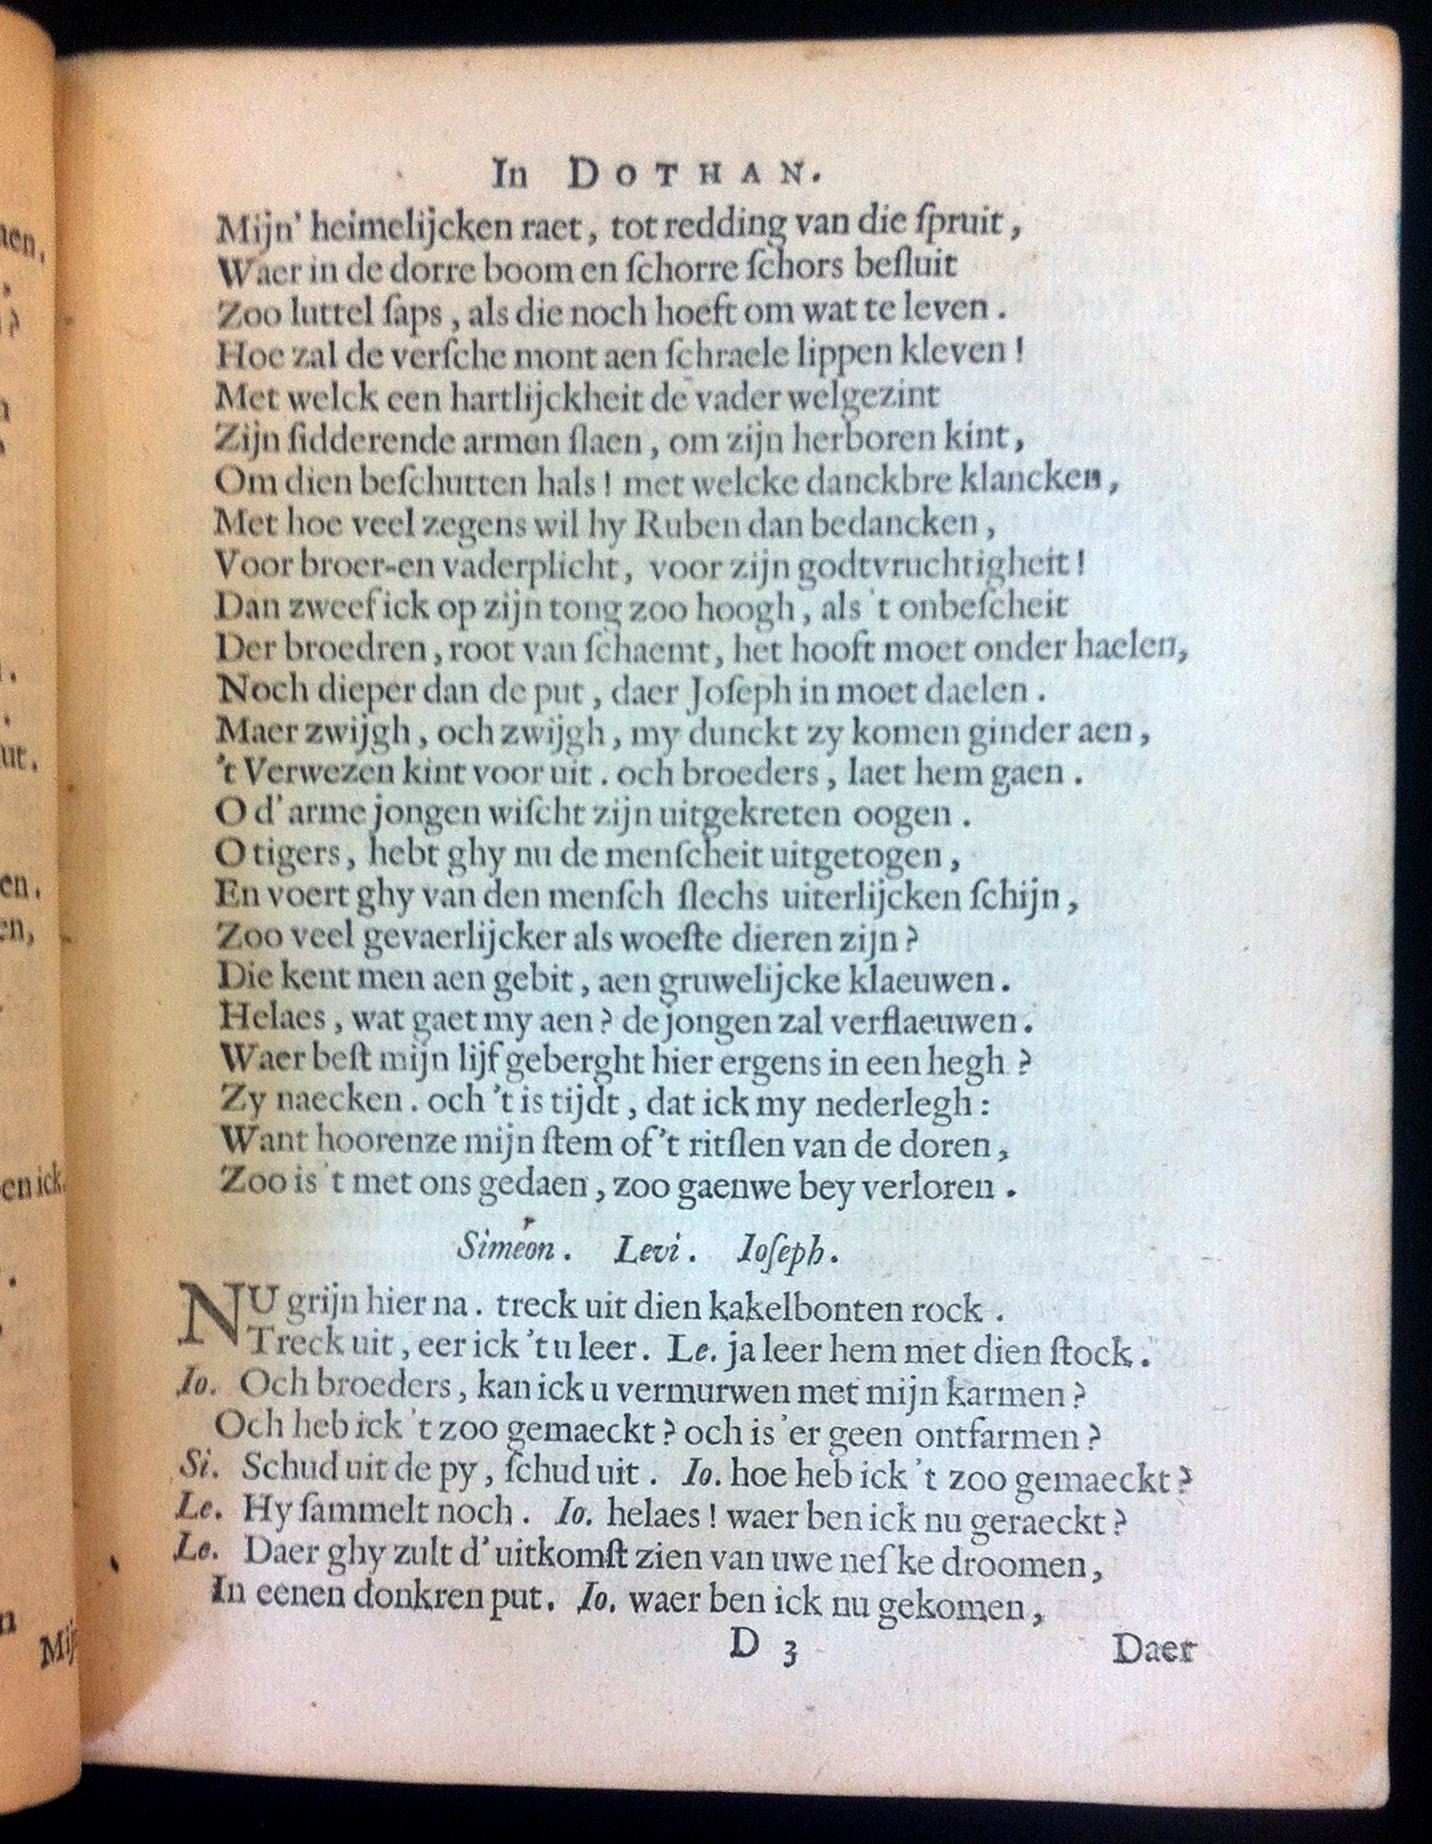 In DOTHAN.
Mijn' heimelijcken raet, tot redding van die ſpruit,
Waer in de dorre boom en ſchorre ſchors beſluit
Zoo luttel ſaps, als die noch hoeft om wat te leven.
Hoe zal de verſche mont aen ſchraele lippen kleven!
Met welck een hartlijckheit de vader welgezint
Zijn ſidderende armen ſlaen, om zijn herboren kint,
Om dien beſchutten hals! met welcke danckbre klancken,
Met hoe veel zegens wil hy Ruben dan bedancken,
Voor broer-en vaderplicht, voor zijn godtvruchtigheit!
Dan zweef ick op zijn tong zoo hoogh, als 't onbeſcheit
Der broedren, root van ſchaemt, het hooft moet onder haelen,
Noch dieper dan de put, daer Joſeph in moet daelen.
Maer zwijgh, och zwijgh, my dunckt zy komen ginder aen,
't Verwezen kint voor uit. och broeders, laet hem gaen.
O d'arme jongen wiſcht zijn uitgekreten oogen.
O tigers, hebt ghy nu de menſcheit uitgetogen,
En voert ghy van den menſch ſlechs uiterlijcken ſchijn,
Zoo veel gevaerlijcker als woeſte dieren zijn?
Die kent men aen gebit, aen gruwelijcke klaeuwen.
Helaes, wat gaet my aen? de jongen zal verflaeuwen.
Waer beſt mijn lijf geberght hier ergens in een hegh?
Zy naecken. och 't is tijdt, dat ick my nederlegh:
Want hoorenze mijn ſtem of 't ritſlen van de doren,
Zoo is 't met ons gedaen, zoo gaenwe bey verloren.
Simeon. Levi. Ioſeph.
NU grijn hier na. treck uit dien kakelbonten rock.
Treck uit, eer ick 't u leer. Le. ja leer hem met dien ſtock.
Io. Och broeders, kan ick u vermurwen met mijn karmen?
Och heb ick 't zoo gemaeckt? och is 'er geen ontfarmen?
Si. Schud uit de py, ſchud uit. Io. hoe heb ick 't zoo gemaeckt?
Le. Hy ſammelt noch. Io. helaes! waer ben ick nu geraeckt?
Le. Daer ghy zult d'uitkomſt zien van uwe neſke droomen,
In eenen donkren put. Io. waer ben ick nu gekomen,
D 3 Daer